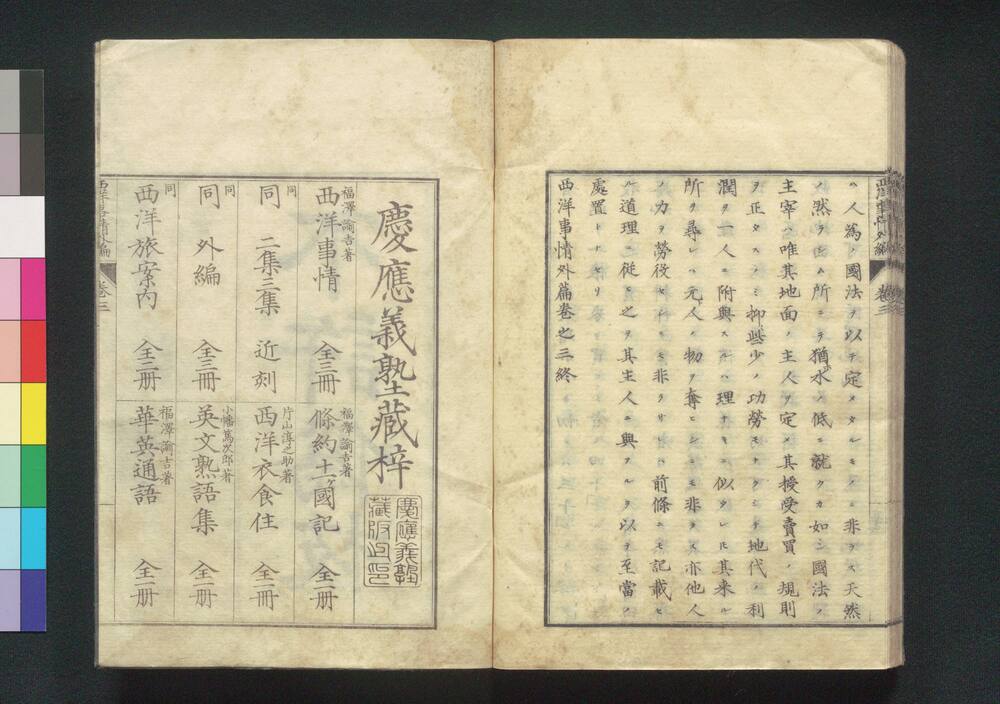 ヘ人爲ノ國法ヲ以テ定メタルモノニ非ラズ天然
ノ然ラシムル所ニテ猶水ノ低ニ就クカ如シ國法ノ
主宰ハ唯其地面ノ主人ヲ定メ其授受賣買ノ規則
ヲ正タスノミ抑些少ノ功勞モナクシテ地代ノ利
潤ヲ一人ニ附與スルハ理ナキニ似タレドモ其来ル
所ヲ尋レハ元ト人ノ物ヲ奪ヒシニモ非ラズ亦他人
ノ力ヲ勞役セシニモ非ラサレハ前條ニモ記載セ
ル道理ニ從ヒ之ヲ其主人ニ與フルヲ以テ至當ノ
處置トセリ
西洋事情外篇卷之三終
西洋事情外編
卷三
慶應義塾藏梓
慶應義塾藏版之印
福澤諭吉著
西洋事情 全三冊
同
同 二集三集 近刻
同
同 外編 全三冊
同
西洋旅案内 全二册
福澤諭吉著
條約十一ヶ國記 全一册
片山淳之助著
西洋衣食住 全一冊
小幡篤次郎著
英文熟語集 全一册
福澤諭吉著
華英通語 全一册
西洋事情外編
卷三